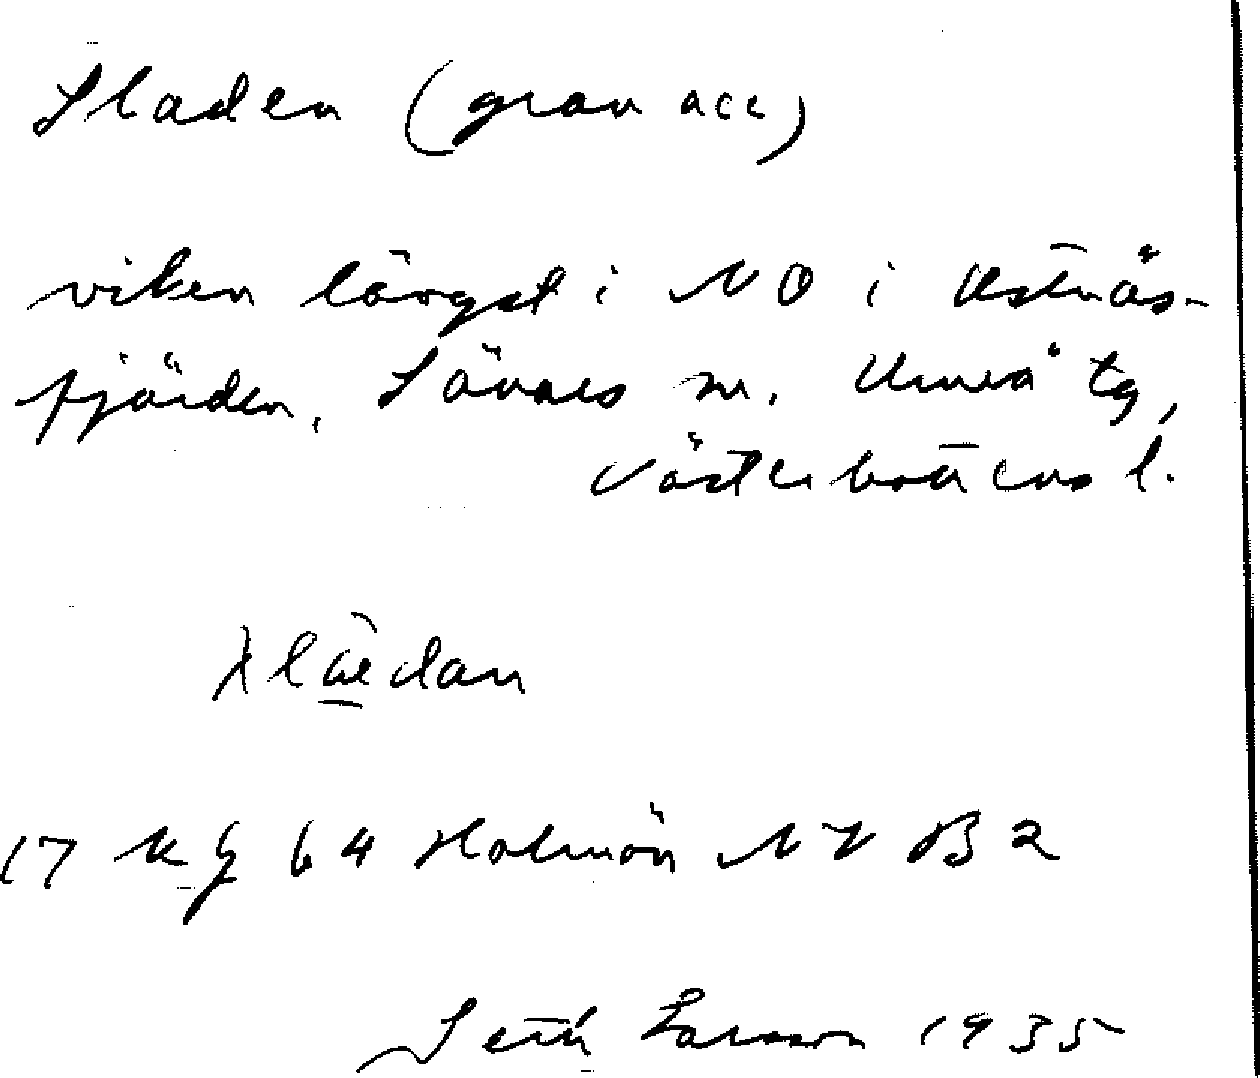 Sladen (grav acc)
viken längst i NO i Ostnäs-
fjärden, Sävars sn. Umeå tg,
Västerbottens l.
slæ̅dan
17 aug 64 Holmön NV B2
Seth Larsson 1935